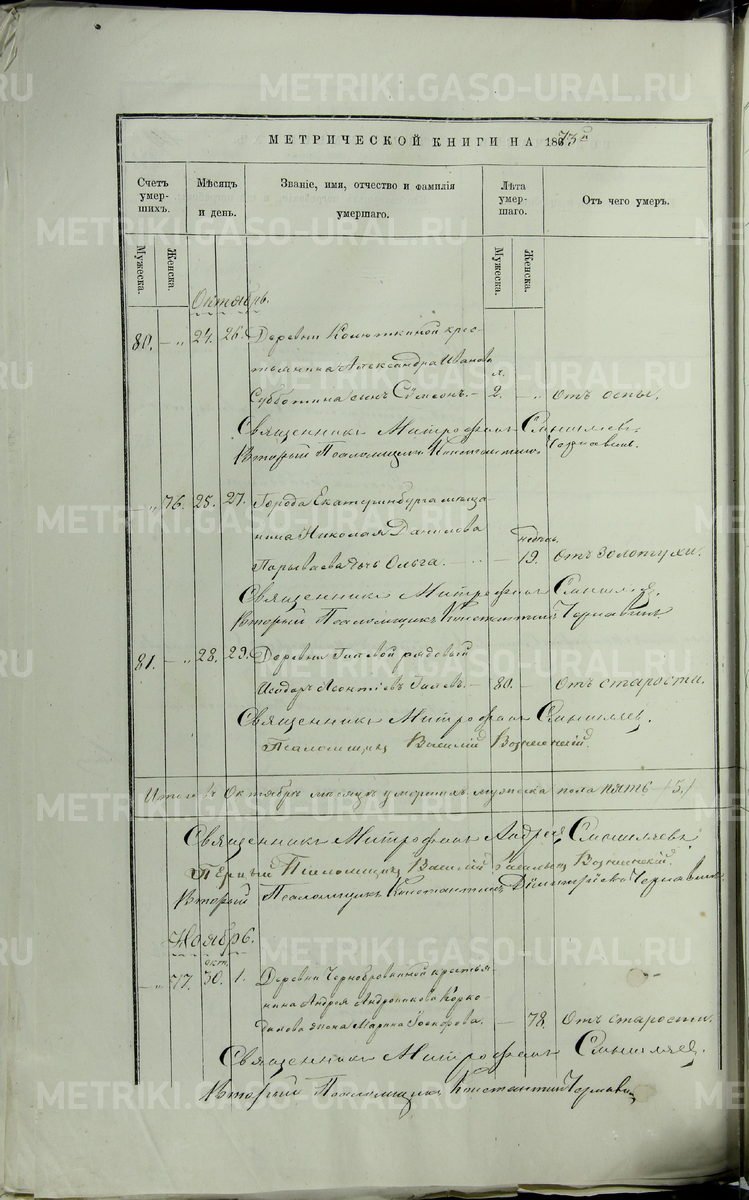 METRIKI.GASO-URAL.RU
МЕТРИЧЕСКОЙ КНИГИ НА 1873й
Счетъ умер- шихъ.
Мѣсяцъ и день.
Званіе, имя, отчество и фамилія умершаго.
Лѣта умер- шаго.
Отъ чего умеръ.
Мужеска.
Женска.
Мужеска.
Женска.
Октябрь.
80. — „ 24. 26. Деревни Колюткиной крес-
тьянина Александра Иванова
л.
Субботина сынъ Сѵмеонъ. — 2. — „ отъ оспы.
Священникъ Митрофанъ Смышляевъ
Вторый Псаломщикъ Константинъ Чернавинъ.
— „ 76. 25. 27. Города Екатеринбурга мѣща-
нина Николая Данилова
недѣль.
дочь Ольга. — „ — 19. отъ золотухи.
Священникъ Митрофанъ Смышляев.
Вторый Псаломщикъ Константинъ Чернавинъ.
81. — „ 28. 29. Деревни Гилевой рядовый
Исидоръ Леонтіевъ Гилевъ. — 80. — отъ старости.
Священникъ Митрофанъ Смышляев.
Псаломщикъ Василій Вознесенскій.
Итого въ Октябрѣ мѣсяцѣ умершихъ мужеска пола пять (5.)
Священникъ Митрофанъ Андреев Смышляевъ
Первый Псаломщикъ Василій Васильев Вознесенскій.
Вторый Псаломщикъ Константинъ Димитріевъ Чернавинъ.
Ноябрь.
окт.
— „ 77. 30. 1. Деревни Чернобровкиной крестья-
нина Андрея Андроникова Корко-
динова жена Марина Ѳеодорова. — 78. отъ старости.
Священникъ Митрофанъ Смышляев.
Вторый Псаломщикъ Константин Чернавин